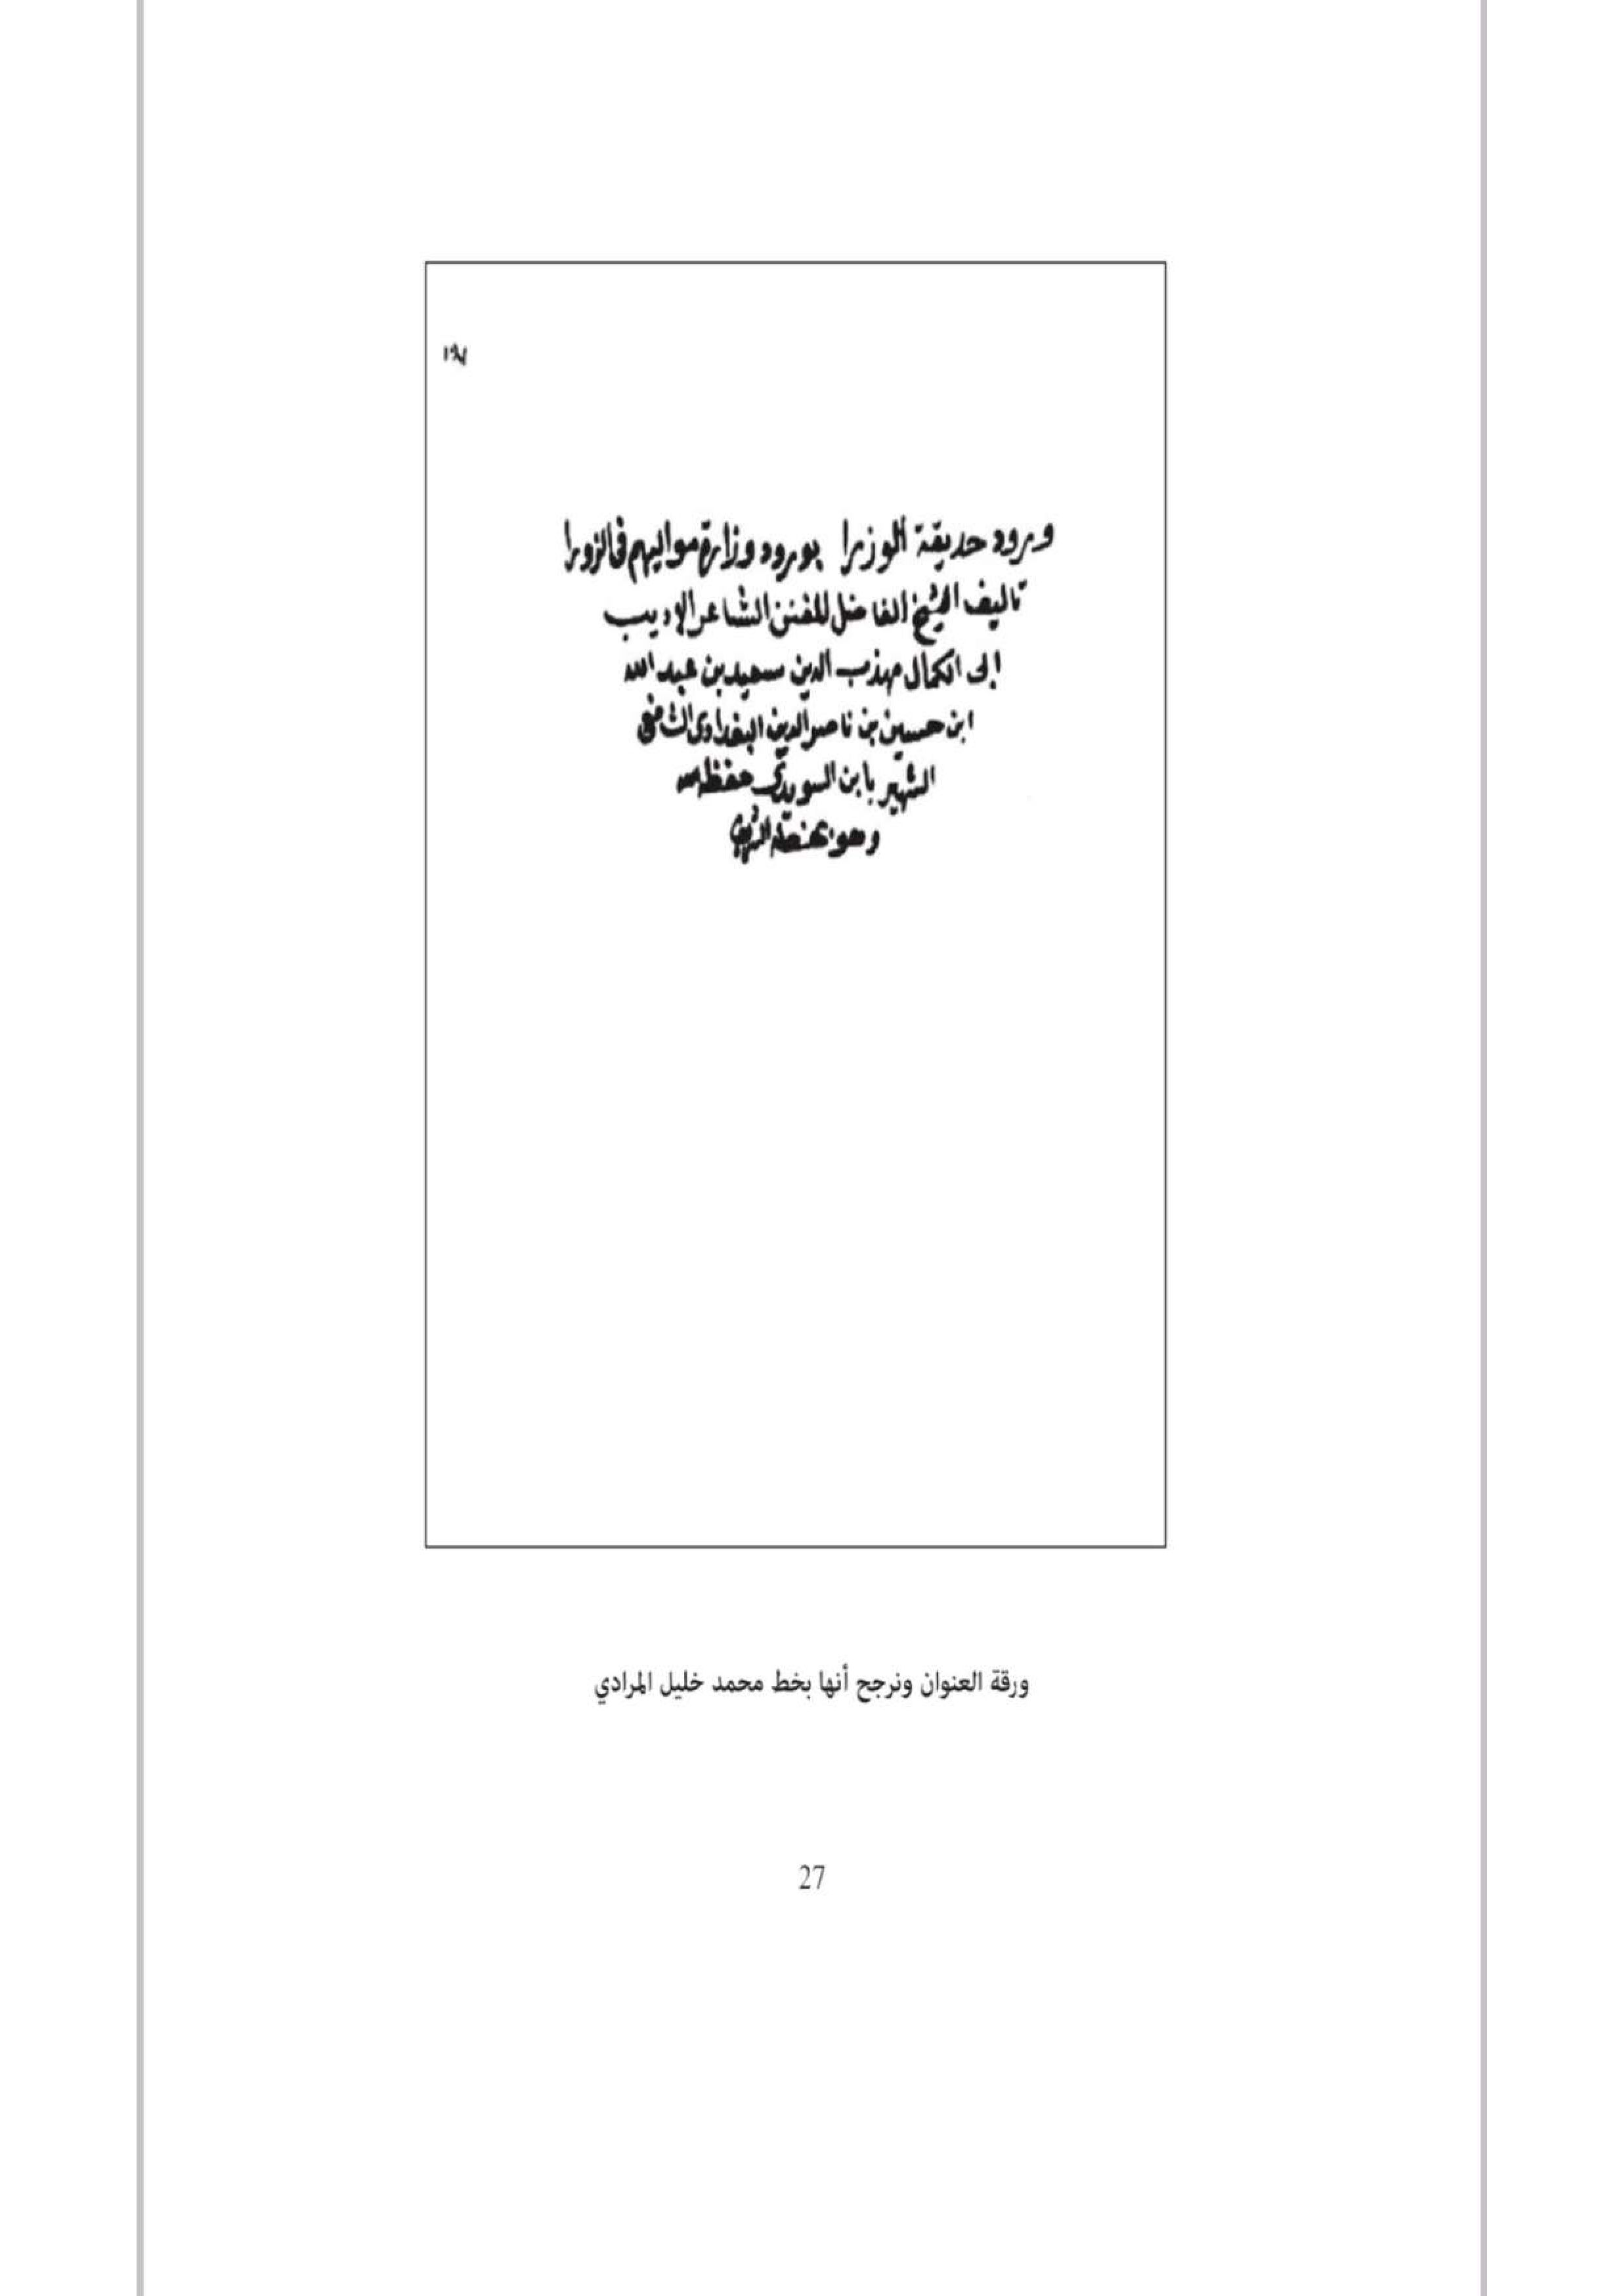 ورود حديقة الوزرا بورود وزارة مواليهم في الزورا
تاليف الشيخ الفاضل المفنن الشاعر الاديب
ابي الكمال مهذب الدين سعيد بن عبد الله
ابن حسين بن ناصر الدين البغدادي الشافعي
الشهير بابن السويدي حفظه الله
وهو بخطه
ورقة العنوان ونرجح أنها بخط محمد خليل المرادي
27